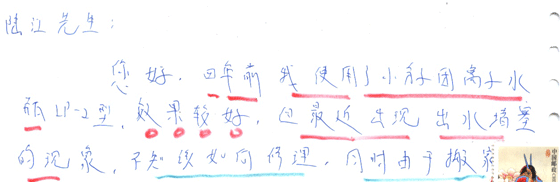 陆江先生：
您好。四年前我使用了小分子团离子水
瓶LP-2型，效果较好，但最近出现出水堵塞
的现象，不知该如何修理，同时由于搬家